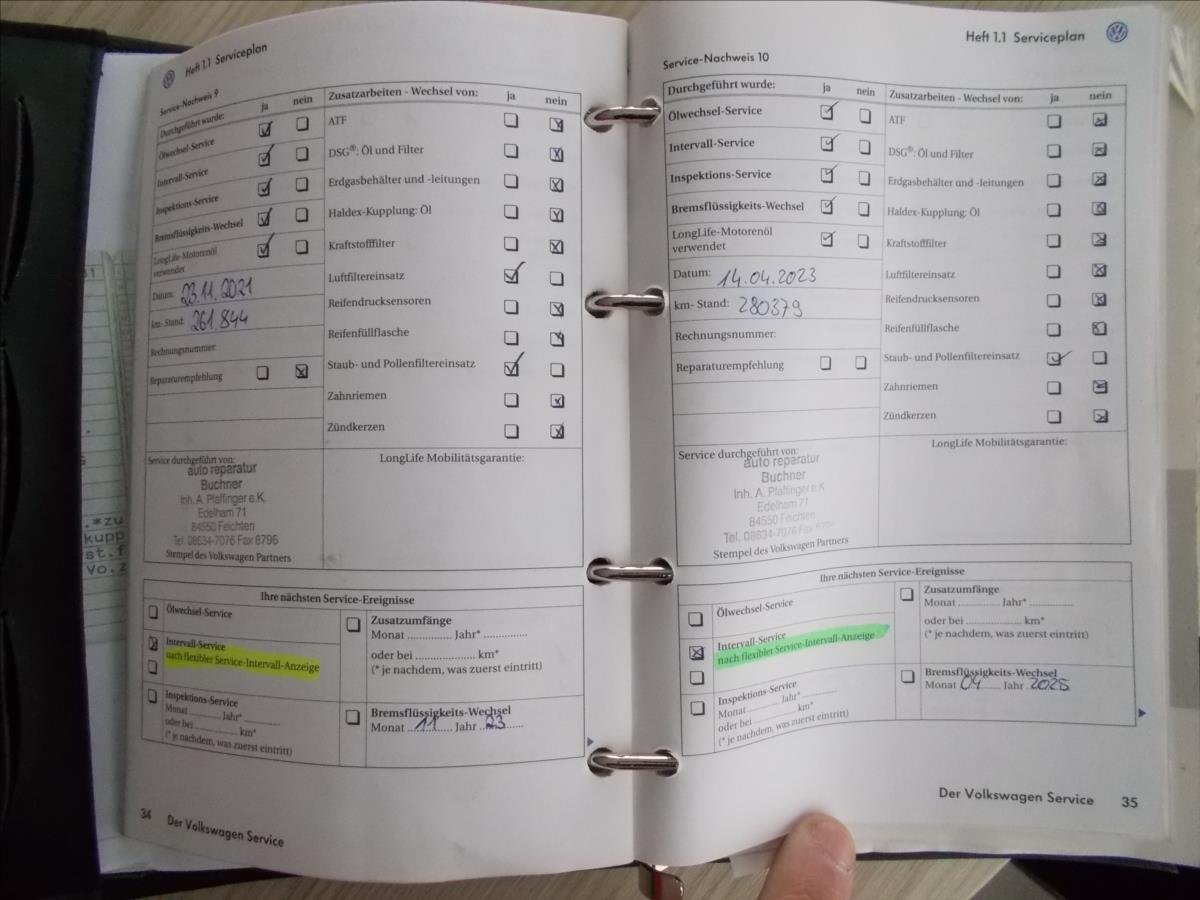 Heft 1.1 Serviceplan
Service-Nachweis 9
Durchgeführt wurde: ja nein
Ölwechsel-Service
Intervall-Service
Inspektions-Service
Bremsflüssigkeits-Wechsel
LongLife-Motorenöl
verwendet
Datum: 23.11.2021
km- Stand: 261.844
Rechnungsnummer:
Reparaturempfehlung
Zusatzarbeiten - Wechsel von: ja nein
ATF
DSG®: Öl und Filter
Erdgasbehälter und -leitungen
Haldex-Kupplung: Öl
Kraftstofffilter
Luftfiltereinsatz
Reifendrucksensoren
Reifenfüllflasche
Staub- und Pollenfiltereinsatz
Zahnriemen
Zündkerzen
Service durchgeführt von:
auto reparatur
Buchner
Inh. A. Pfaffinger e.K.
Edelham 71
84550 Feichten
Tel. 08634-7076 Fax 8796
Stempel des Volkswagen Partners
LongLife Mobilitätsgarantie:
Ihre nächsten Service-Ereignisse
Ölwechsel-Service
Intervall-Service
nach flexibler Service-Intervall-Anzeige
Inspektions-Service
Monat .......... Jahr* ..........
oder bei .................... km*
(* je nachdem, was zuerst eintritt)
Zusatzumfänge
Monat .............. Jahr* ..............
oder bei .................... km*
(* je nachdem, was zuerst eintritt)
Bremsflüssigkeits-Wechsel
Monat 11 Jahr 23
34 Der Volkswagen Service
Heft 1.1 Serviceplan
Service-Nachweis 10
Durchgeführt wurde: ja nein
Ölwechsel-Service
Intervall-Service
Inspektions-Service
Bremsflüssigkeits-Wechsel
LongLife-Motorenöl
verwendet
Datum: 14.04.2023
km- Stand: 280379
Rechnungsnummer:
Reparaturempfehlung
Zusatzarbeiten - Wechsel von: ja nein
ATF
DSG®: Öl und Filter
Erdgasbehälter und -leitungen
Haldex-Kupplung: Öl
Kraftstofffilter
Luftfiltereinsatz
Reifendrucksensoren
Reifenfüllflasche
Staub- und Pollenfiltereinsatz
Zahnriemen
Zündkerzen
Service durchgeführt von:
auto reparatur
Buchner
Inh. A. Pfaffinger e.K
Edelham 71
84550 Feichten
Tel. 08634-7076 Fax 8796
Stempel des Volkswagen Partners
LongLife Mobilitätsgarantie:
Ihre nächsten Service-Ereignisse
Ölwechsel-Service
Intervall-Service
nach flexibler Service-Intervall-Anzeige
Inspektions-Service
Monat .......... Jahr* ..........
oder bei .................... km*
(* je nachdem, was zuerst eintritt)
Zusatzumfänge
Monat .............. Jahr* ..............
oder bei .................... km*
(* je nachdem, was zuerst eintritt)
Bremsflüssigkeits-Wechsel
Monat 04 Jahr 2025
Der Volkswagen Service 35